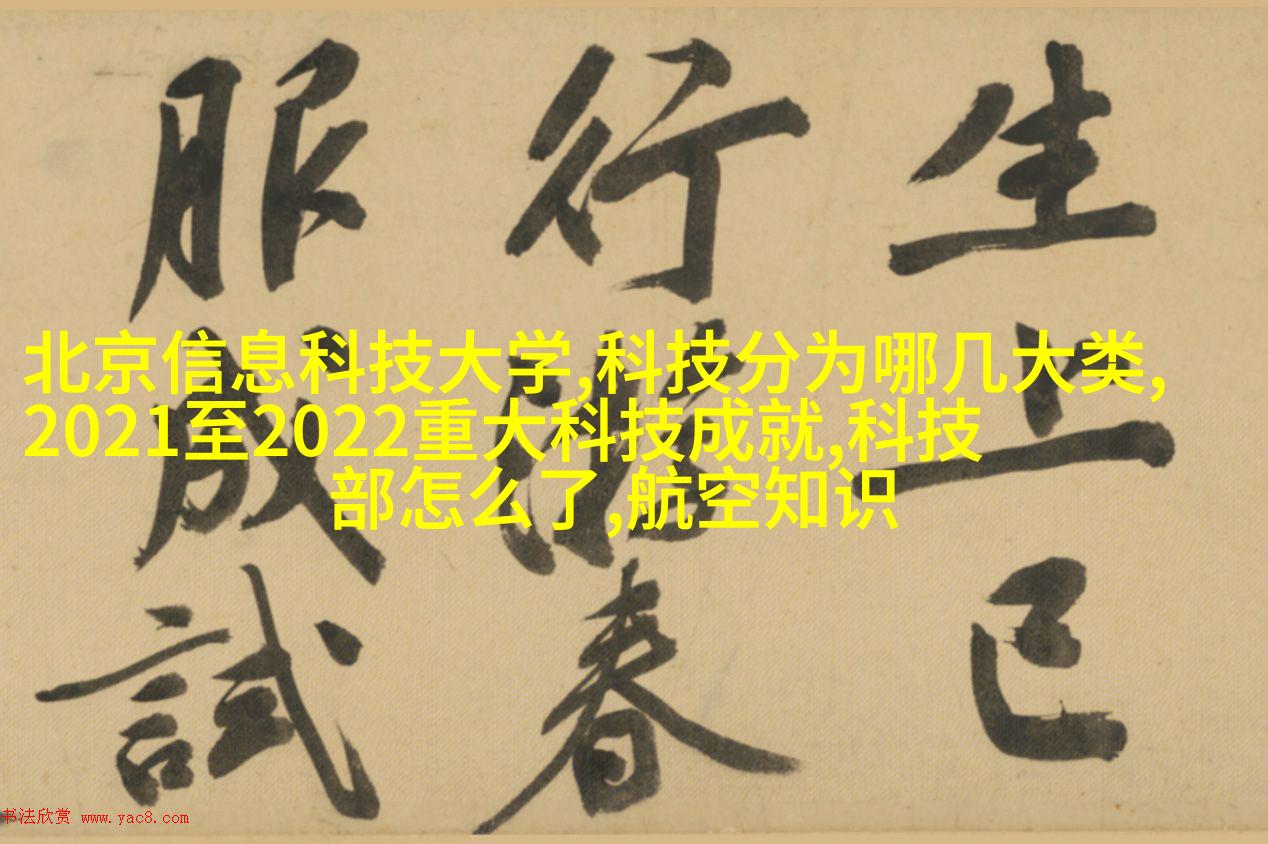 生上巳
行春
服成試
北京信息科技大学,科技分为哪几大类,
2021至2022重大科技成就,科技
部怎么了,航空知识
书法欣赏 www.yac8.com